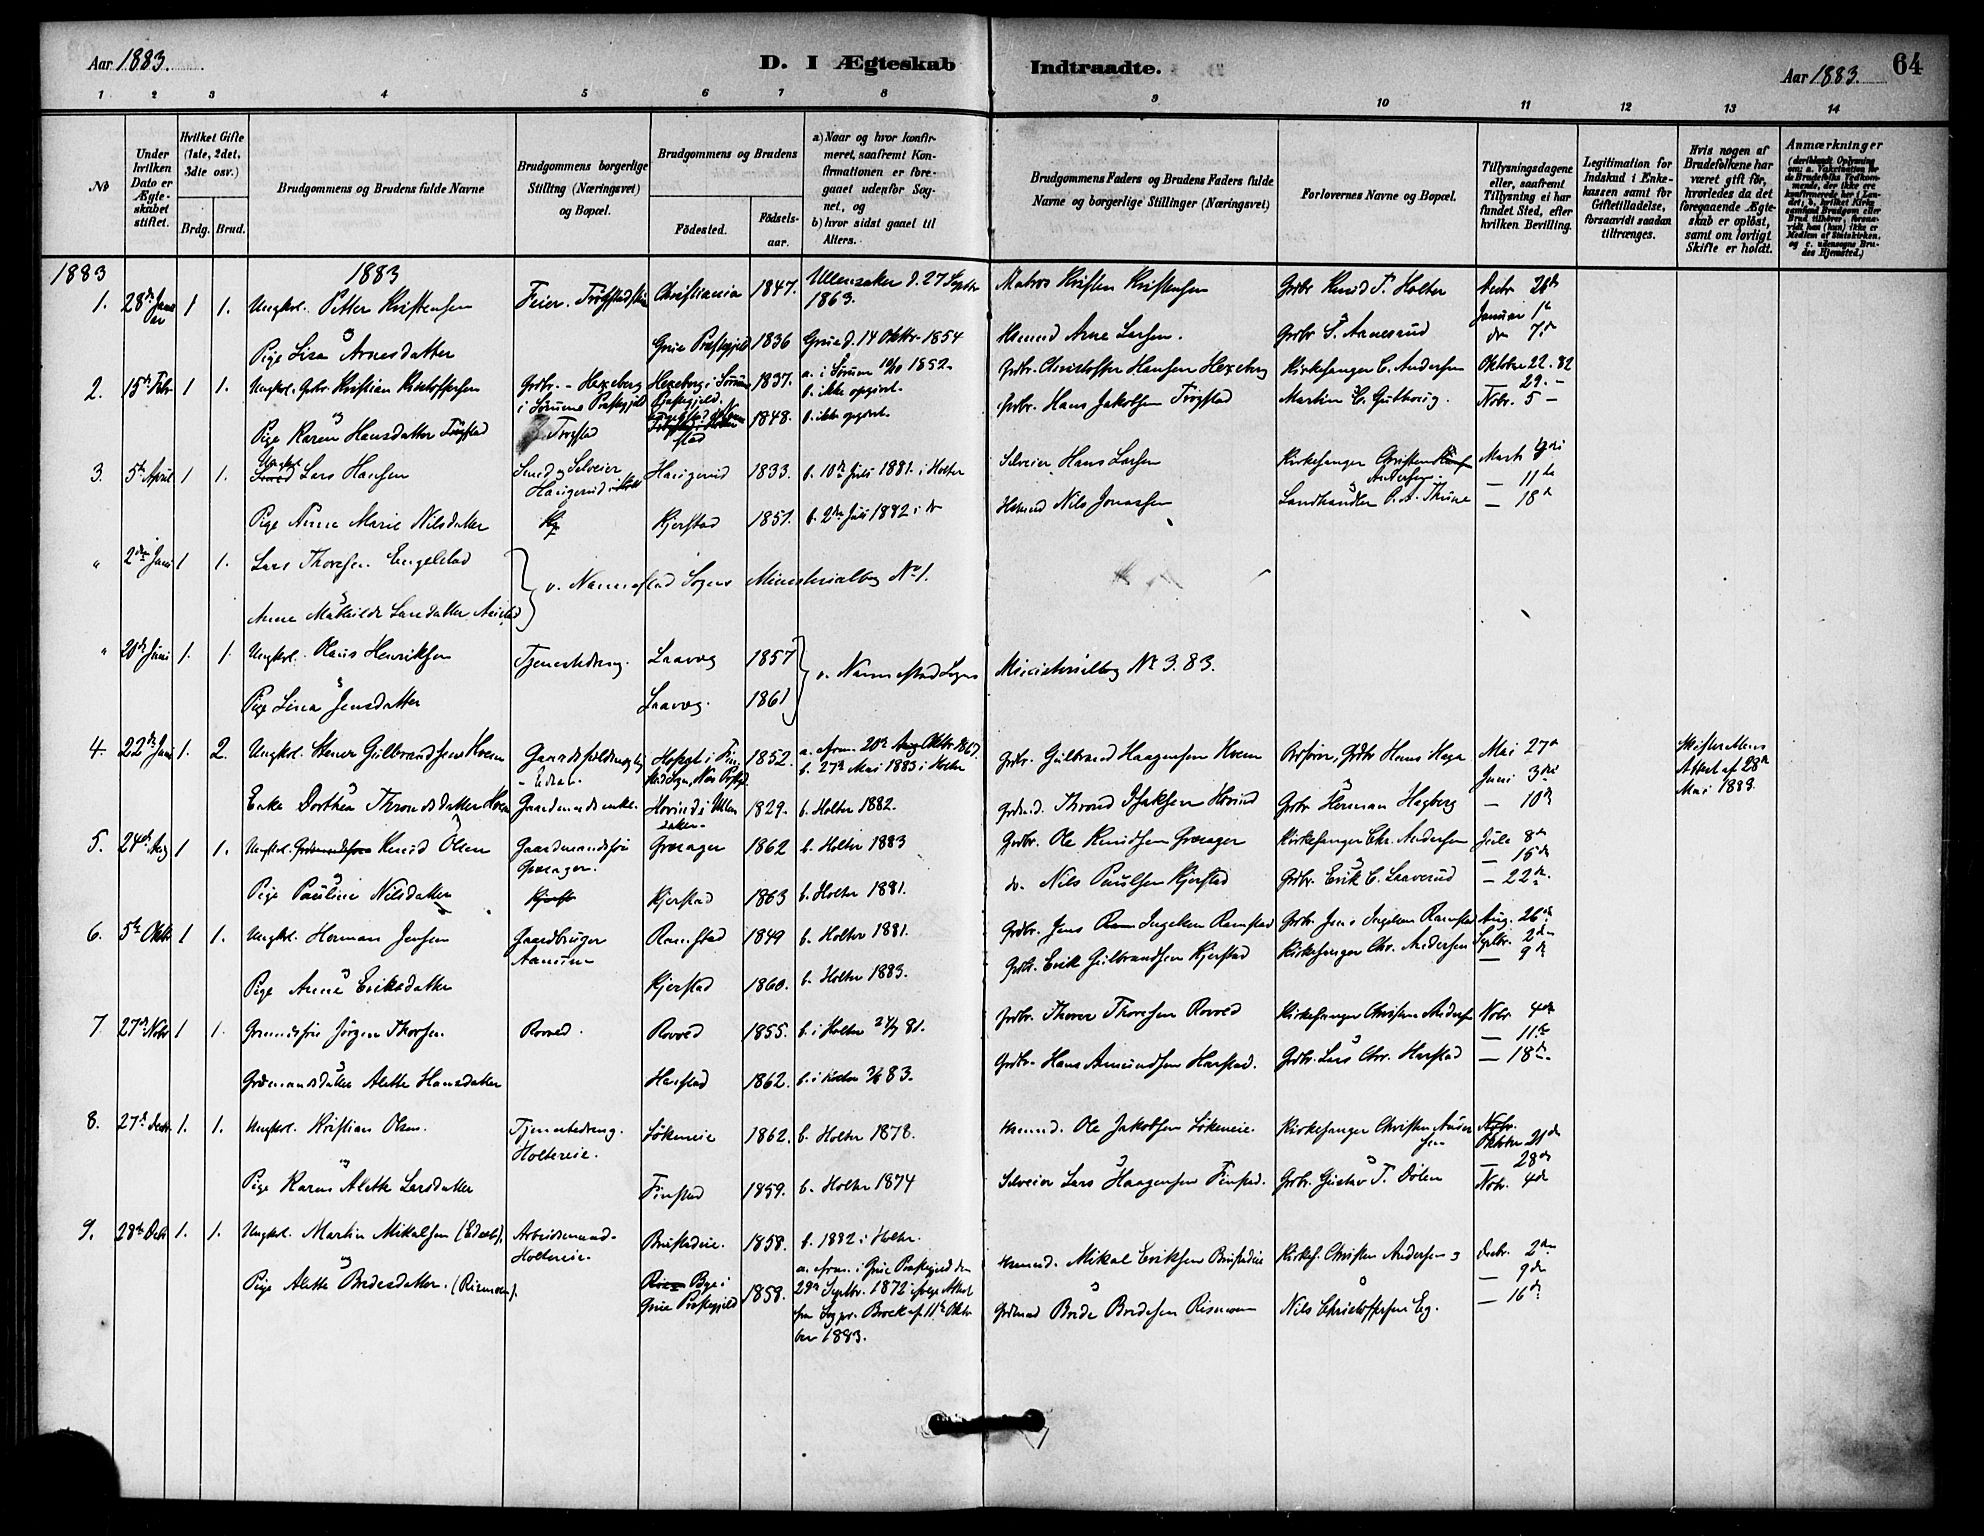 Aar 1883.
D. I Ægteskab Indtraadte.
Aar 1883.
64
1 2 3 4 5 6 7 8 9 10 11 12 13 14
No
Under hvilken Dato er Ægteskabet stiftet.
Hvilket Gifte (1ste, 2det, 3die osv.)
Brdg. Brud.
Brudgommens og Brudens fulde Navne
Brudgommens borgerlige Stilling (Næringsvei) og Bopæl.
Brudgommens og Brudens
Födested.
Födselsaar.
a) Naar og hvor konfirmeret, saafremt Konfirmationen er foregaaet udenfor Sognet, og
b) hvor sidst gaaet til Alters.
Brudgommens Faders og Brudens Faders fulde Navne og borgerlige Stillinger (Næringsvei)
Forlovernes Navne og Bopæl.
Tillysningsdagene eller, saafremt Tillysning ei har fundet Sted, efter hvilken Bevilling.
Legitimation for Indskud i Enkekassen samt for Giftetilladelse, forsaavidt saadan tiltrænges.
Hvis nogen af Brudefolkene har været gift før, hvorledes da det foregaaende Ægteskab er opløst, samt om lovligt Skifte er holdt.
Anmærkninger
1883 1883
1. 28de Januar 1 1. Ungkrl. Petter Kristensen Feier. Christiania 1847. Ullensaker d. 27 Septbr 1863. Matros Kristen Kristensen Grdbr Knud T. Holter Decbr 28de
Januar 1ste
Pige Lisa Arnesdatter Grue Præstegjeld 1836 Grue d. 14 Oktbr. 1854 Husmd Arne Larsen. Grdbr S. Aanesrud do 7de
2. 15de Febr 1 1. Ungkrl. Gbr. Kristian Kristoffersen Grdbr. - Hexeberg i Sørum Præstegjeld Hexeberg i Sørum Præstegjeld. 1837. a. i Sørum 10/10 1852. b. ikke opgivet. Grdbr. Christoffer Hansen Hexeberg Kirkesanger C. Andersen Oktober 22. 82
29. -
Pige Karen Hansdatter Trøgstad Trøgstad 1848. b. ikke opgivet. Grdbr. Hans Jakobsen Trøgstad Martin E. Gutborig. Nobr. 5 -
3. 5te April 1 1. Ungkrl. Lars Hansen Smed og Selveier Haugerud Haugerud 1833. b. 10de Juli 1881. i Holter Selveier Hans Larsen Kirkesanger Christen Andersen Marts
- 11te
Pige Anne Marie Nilsdatter Kjerstad 1851. b. 2den Juli 1882 i do Husmd Nils Jonassen Landhandler C. A. Thune - 18de
" 2den Juni 1 1. Lars Thoresen Engelstad
v. Nannestad Sogns Ministerialbog No 1.
Anne Mathilde Larsdatter
" 20de Juni 1. 1. Ungkrl. Olaus Henriksen Tjenestedreng. Laavœg 1857
v. Nannestad Sogns Ministerialbog No 3. 83.
Pige Lina Jensdatter Laavœg. 1861
4. 22de Juni 1. 2. Ungkrl. Stener Gulbrandsen Hvam 1852. b. 27de Mai 1883 i Holter Grdbr. Gulbrand Haagensen Hvam Grdbr Hans Haga Mai 27de
Juni 3die
Skifterettens Attest af 28de Mai 1883.
Enke Dorthea Throndsdatter Hvam Gaardmandsenke. Hovind i Ullensaker. 1829. b. Holter 1882. Grdmd. Thrond Isaksen Hovind Grdbr Herman Hagberg - 10de
5. 24de Aug 1 1. Ungkrl. Knud Olsen Gaardmandssøn Græsager. Græsager 1862 b. Holter 1883 Grdbr. Ole Knudsen Græsager Kirkesanger Chr. Andersen Juli 8de
- 15de
Pige Pauline Nilsdatter Kjerstad 1863 b. Holter 1881. do. Nils Paulsen Kjerstad Grdbr. Erik C. Laaverud - 22de
6. 5te Oktbr 1 1. Ungkrl. Herman Jensen Gaardbruger Ramstad 1849 b. Holter 1881. Grdbr. Jens Ingelsen Ramstad Grdbr. Jens Ingelsen Ramstad Aug. 26de
Septbr. 2den
Pige Anne Eriksdatter Kjerstad 1860. b. Holter 1883. Grdbr. Erik Gulbrandsen Kjerstad Kirkesanger Chr. Andersen - 9de
7. 27de Nobr 1 1. Grmandssøn Jørgen Thoresen. Roved. Roved 1855. b. i Holter 81. Grdbr. Thorer Thoresen Roved Kirkesanger Christen Andersen Nobr 4de
- 11te
Grdmandsdatter Alette Hansdatter Harstad 1862. b. i Holter 83. Grdbr. Hans Amundsen Harstad. Grdbr. Lars Chr. Harstad - 18de
8. 27de Decbr. 1. 1. Ungkrl. Kristian Olsen. Tjenestedreng. Holtereie. Løkeneie 1862. b. Holter 1878. Husmd. Ole Jakobsen Løkeneie. Kirkesanger Christen Andersen Oktober 21de
- 28de
Pige Karen Alette Larsdatter Finstad 1859. b. Holter 1874 Selveier Lars Haagensen Finstad. Grdbr. Gustav T. Dølen Nobr. 4de
9. 28de Decbr 1. 1. Ungkrl. Martin Mikalsen Arbeidsmand. Holtereie. Brustadeie. 1858. b. 1882 i Holter. Husmd. Mikal Eriksen Brustadeie Kirkes. Christen Andersen og Decbr. 2den
- 9de
Pige Alette Bredesdatter. (Rismoen). Bye i Grue Præstegjeld 1859. a. i Grue Præstegjeld den 29de Septbr. 1872 ifølge Attest fra Sogpr. Brock af 11te Oktober 1883. Grdmand Brede Bredesen Rismoen Nils Christoffersen Eg. - 16de